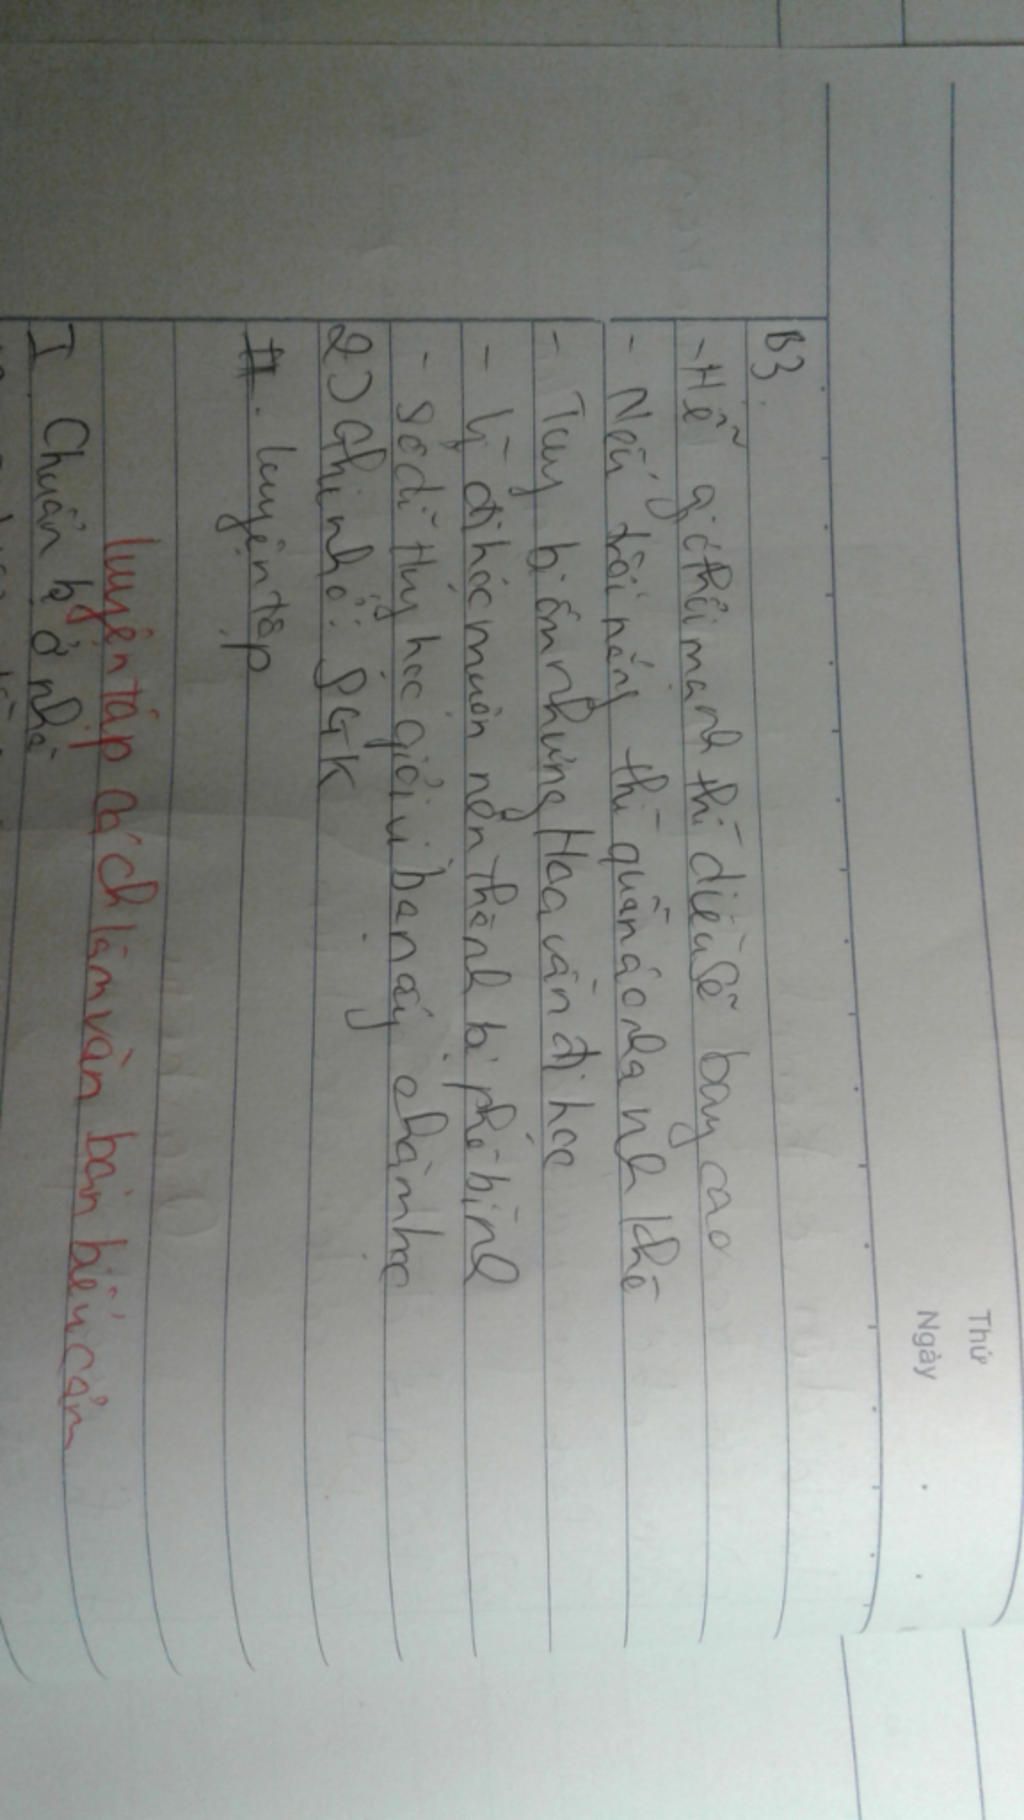 Thứ
Ngày
B3.
- Hễ gió thổi mạnh thì diều sẽ bay cao
- Nếu trời nắng thì quần áo nhanh khô
- Tuy bị ốm nhưng Hoa vẫn đi học
- Vì đi học muộn nên Thành bị phê bình
- Sở dĩ Thủy học giỏi vì bạn ấy chăm học
2) Ghi nhớ: SGK
II. Luyện tập
Luyện tập cách làm văn bản biểu cảm
I Chuẩn bị ở nhà